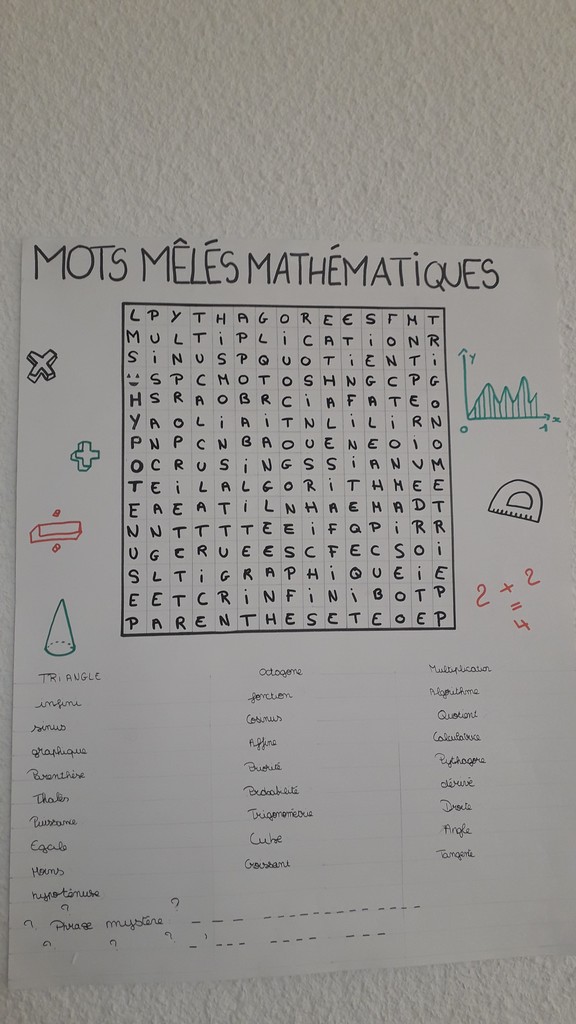 MOTS MÊLÉS MATHÉMATIQUES
L P Y T H A G O R E E S F M T
M U L T i P L i C A T i O N R
S i N U S P Q U O T i E N T i
S P C M O T O S H N G C P G
H S R A O B R C i A F A T E O
Y A O L i A i T N L i L i R N
P N P C N B A O U E N E O i O
O C R U S i N G S S i A N V M
T E i L A L G O R i T H M E E
E A E A T i L N H A E M A D T
N N T T T T E E i F Q P i R R
U G E R U E E S C F E C S O i
S L T i G R A P H i Q U E i E
E E T C R i N F i N i B O T P
P A R E N T H E S E T E O E P
Y
0 1 x
2 × 2
=
4
TRiANGLE Octogone Multiplication
infini fonction Algorithme
sinus Cosinus Quotient
graphique Affine Calculatrice
Parenthèse Priorité Pythagore
Thalès Probabilité dérivé
Puissance Trigonométrie Droite
Egale Cube Angle
Moins Croissant Tangente
hypoténuse
? ?
? Phrase mystère _ _ _ _ _ _ _ _ _ _ _ _ _
? ? ? _ ' _ _ _ _ _ _ _ _ _ _